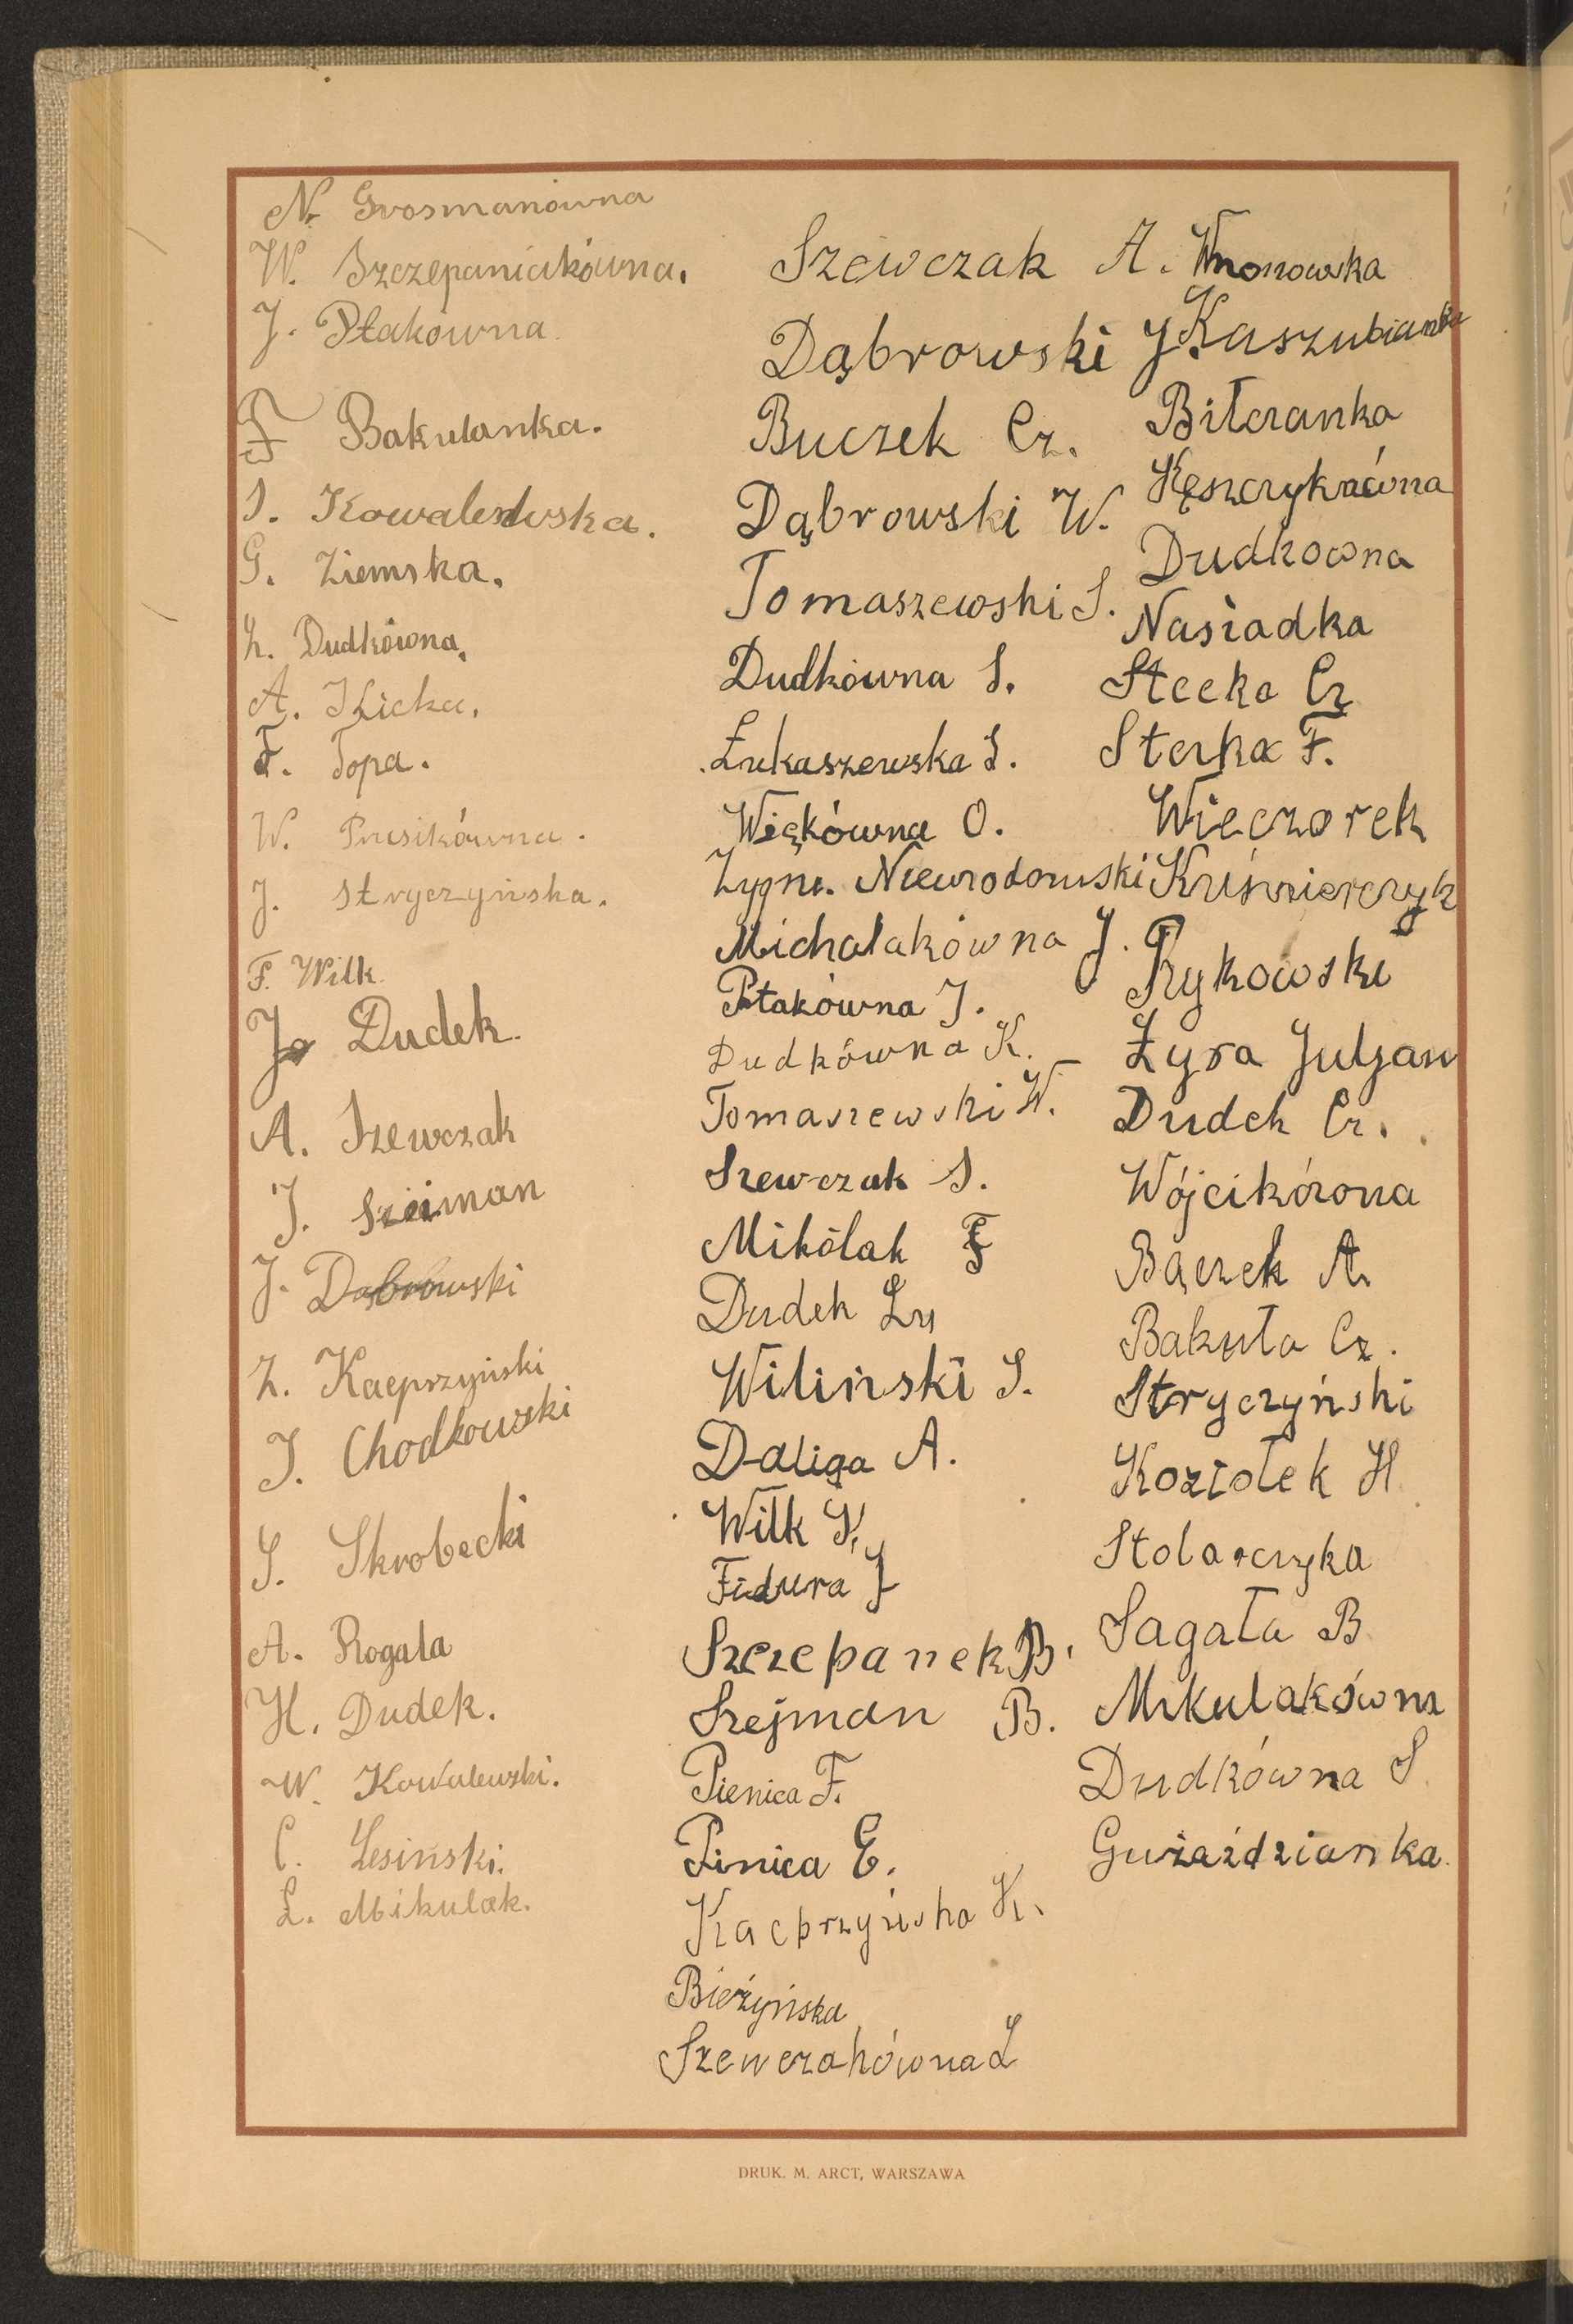 N. Grosmanówna
W. Szczepaniakówna.
J. Ptakówna
F Bakulanka.
S. Kowalewska.
G. Ziemska.
Z. Dudkówna.
A. Kicka.
F. Topa.
W. Prusikówna.
J. Stryczyńska.
F. Wilk
J Dudek.
A. Szewczak
J. Szeiman
J. Dąbrowski
Z. Kacprzyński
J. Chodkowski
S. Skrobecki
A. Rogala
H. Dudek.
W. Kowalewski.
C. Lesiński.
L. Mikulak.
Szewczak A.
Dąbrowski J
Buczek Cz.
Dąbrowski W.
Tomaszewski S.
Dudkówna S.
Łukaszewska S.
Więkówna O.
Zygm.
Michalakówna J.
Ptakówna J.
Dudkówna K.
Tomaszewski W.
Szewczak S.
Mikólak F
Dudek Lu
Wiliński S.
Daliga A.
Wilk
Fidura J
Szczepanek B.
Szejman B.
Pienica F.
Pinica E.
Kacprzyńska K.
Bieżyńska
Szewczakówna L
Wronowska
Kaszubianka
Biteranka
Dudkowna
Nasiadka
Stecka Cz
Sterka F.
Wieczorek
Kuśmierczyk
Rykowski
Żyra Juljan
Dudek Cz.
Wójcikówna
Bączek A.
Bakuła Cz.
Stryczyński
Koziołek H
Stolarczyka
Sagała B
Mikulakówna
Dudkówna S
Gwiaździanka.
DRUK. M. ARCT, WARSZAWA